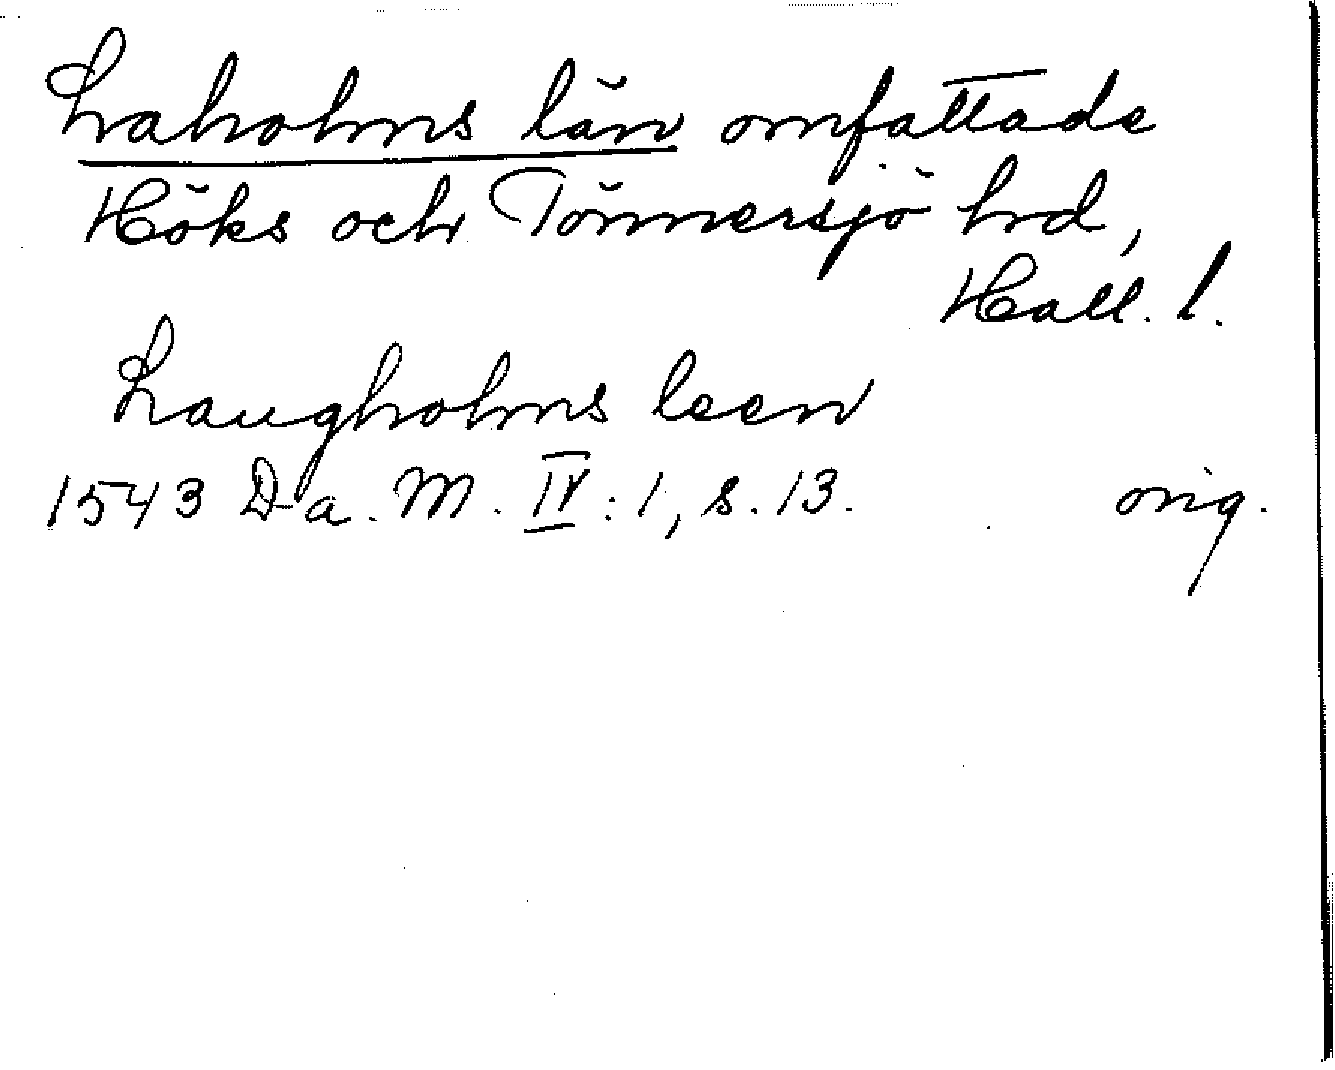 Laholms län omfattade
Höks och Tönnersjö hd,
Hall. l.
Laugholms leen
1543 Da. M. IV: 1, s. 13. orig.